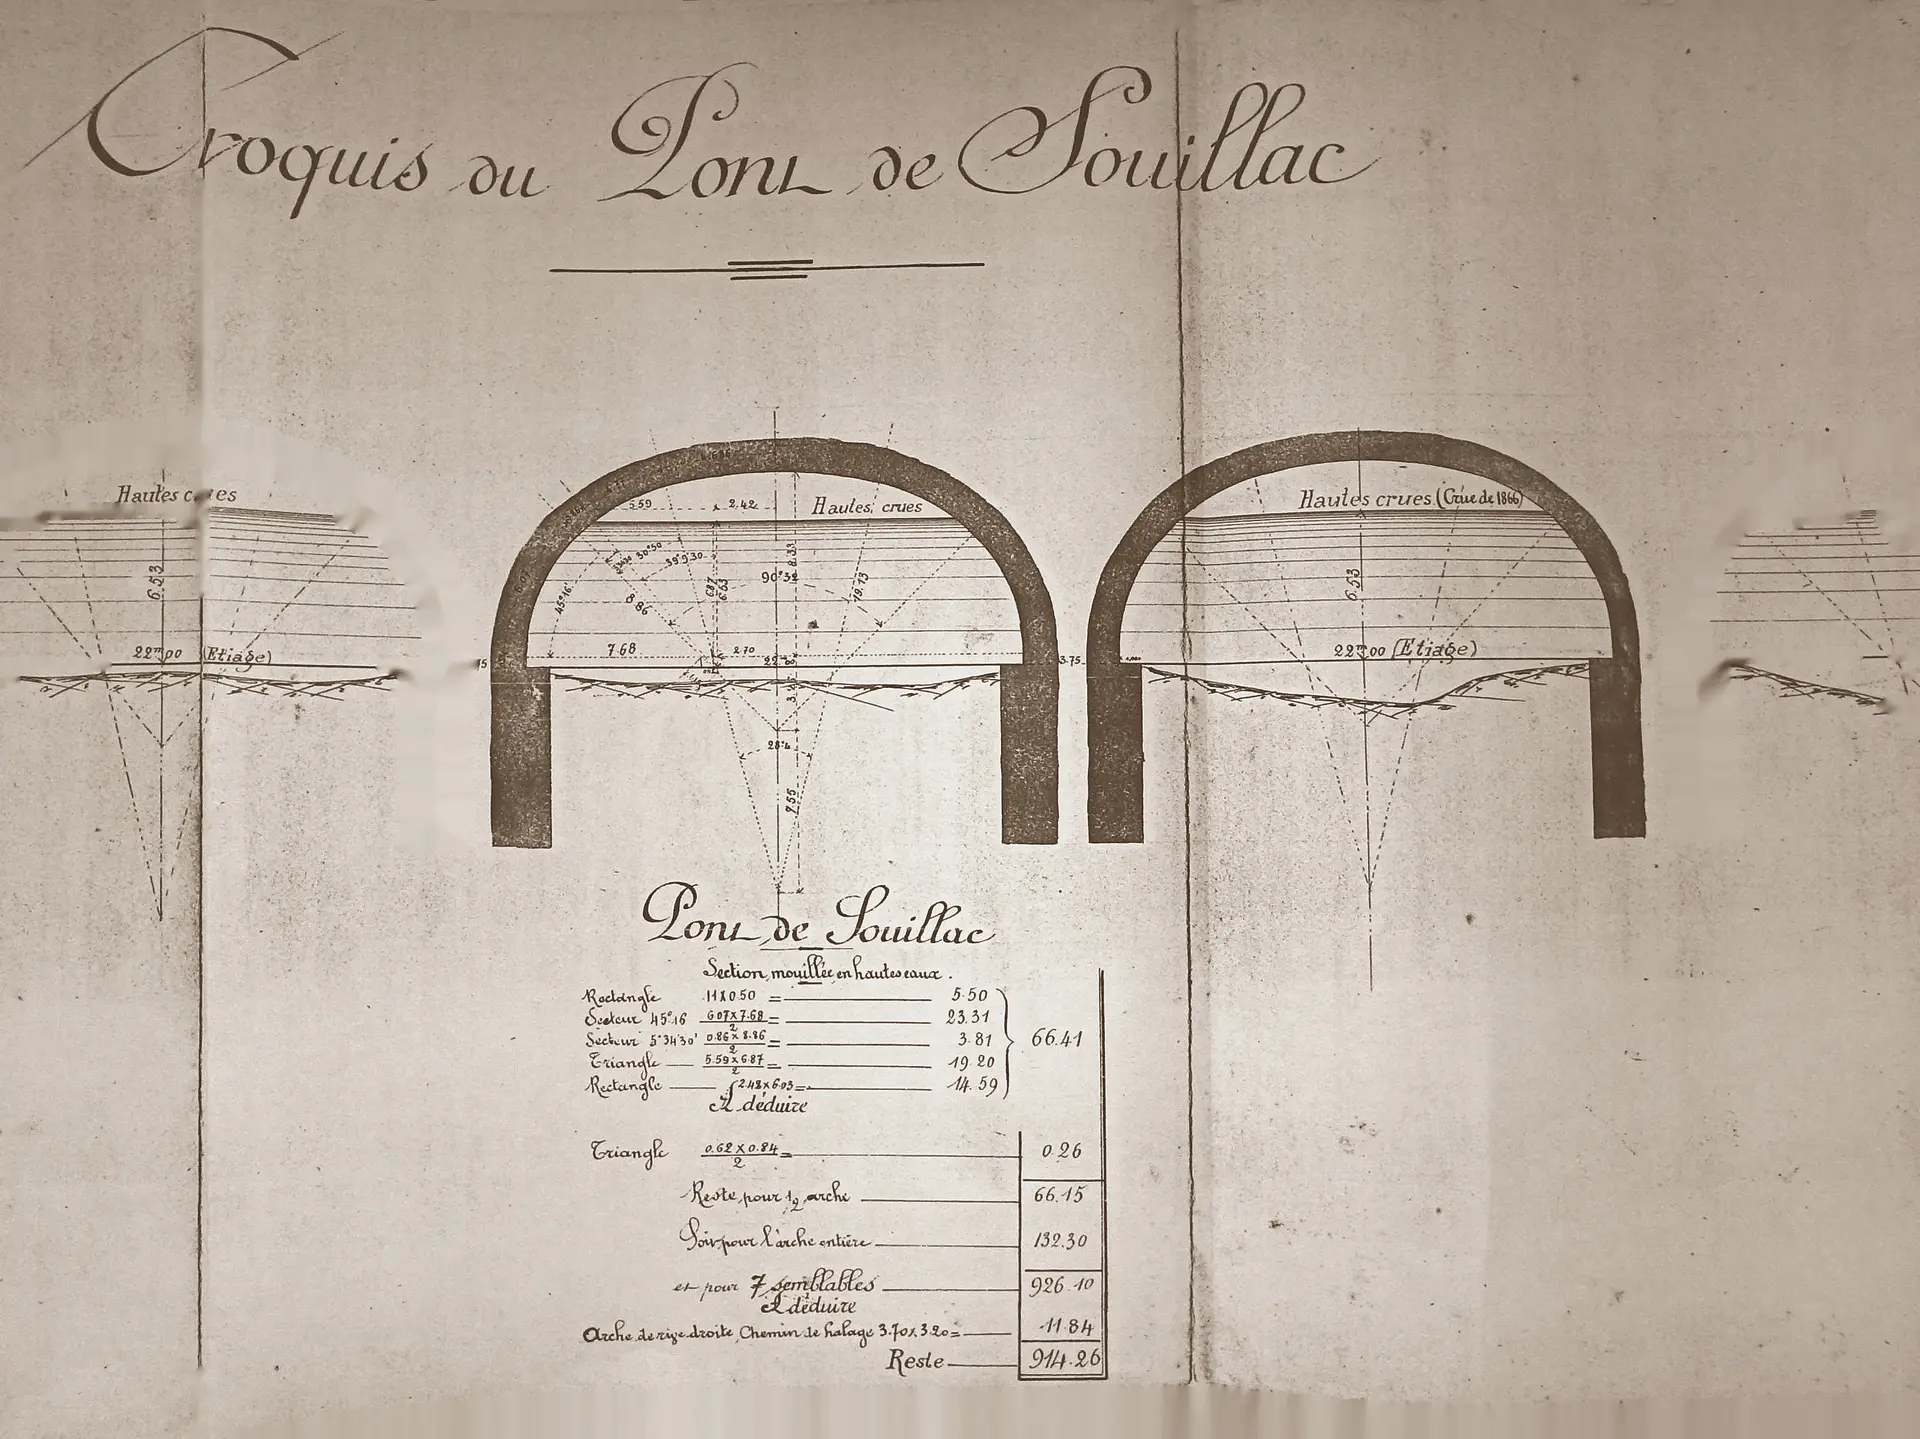 Croquis du Pont de Souillac
Hautes c ues
6.53
22m00 (Etiage)
5.59
2.42
Hautes crues
30°50
39°9.30
90°32
45°16'
8.86
6.87
6.53
8.33
19.13
7.68
2.70
22m00
28°4
7.55
Hautes crues (Crue de 1866)
6.53
22m00 (Etiage)
3.75
Pont de Souillac
Section mouillée en hautes eaux.
Rectangle 11x0.50 = 5.50
Secteur 45°.16 6.07x7.68/2 = 23.31
Secteur 5°34'30' 0.86x8.86/2 = 3.81
66.41
Triangle 5.59x6.87/2 = 19.20
Rectangle 2.42x6.03 = 14.59
A déduire
Triangle 0.62x0.84/2 = 0.26
Reste pour 1/2 arche 66.15
Soit pour l'arche entière 132.30
et pour 7 semblables 926.10
A déduire
Arche de rive droite, Chemin de halage 3.70x3.20= 11.84
Reste 914.26